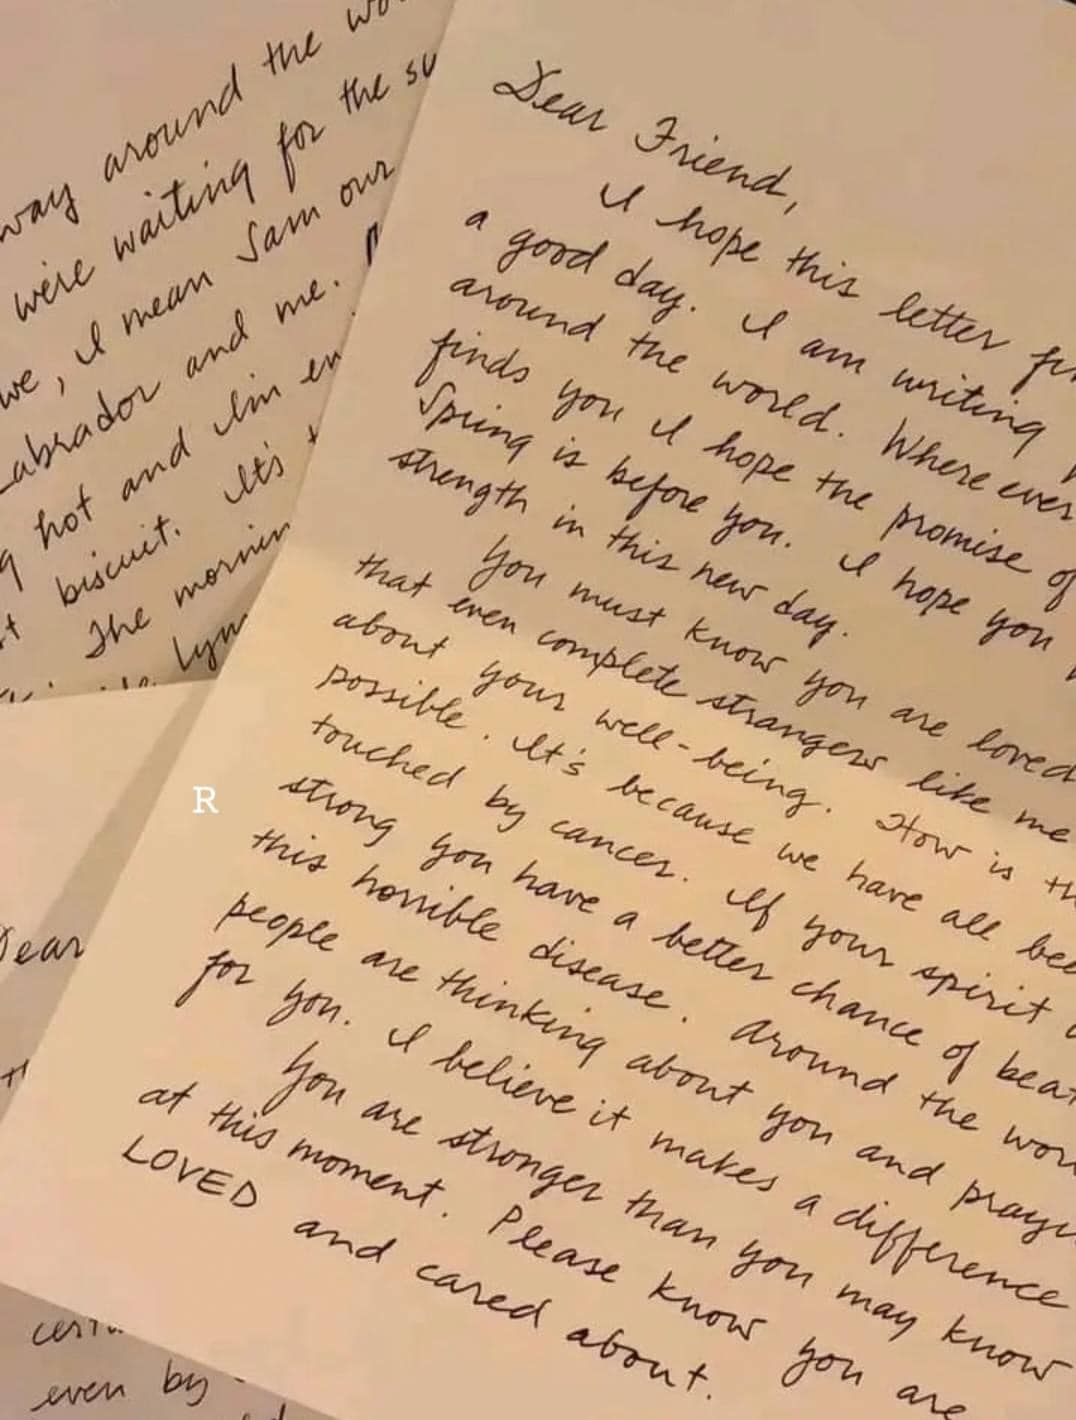 way around the
were waiting for the
we, I mean Sam our
Labrador and me.
hot and I'm
biscuit. It's
The
Dear Friend,
I hope this letter
a good day. I am writing
around the world. Where ever
finds you I hope the promise of
Spring is before you. I hope you
strength in this new day.
You must know you are loved
that even complete strangers like me
about your well-being. How is
possible. It's because we have all
touched by cancer. If your spirit
strong you have a better chance of
this horrible disease. Around the
people are thinking about you and
for you. I believe it makes a difference
You are stronger than you may know
at this moment. Please know you are
LOVED and cared about.
R
Dear
even by